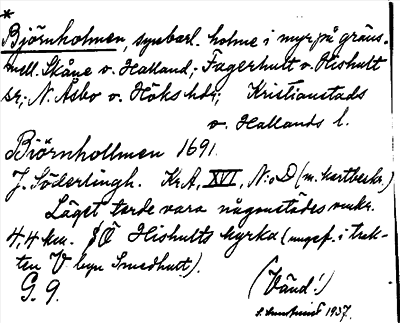 *
Björnholmen, synbarl. holme i myr på gräns.
mell. Skåne o. Halland; Fagerhult o. Hishult
sr; N. Åsbo o. Höks hdr; Kristianstads
o. Hallands l.
Björnhollmen 1691.
J. Söderlingh. Kr.A, XVI, N:o D (m. kartbeskr.)
Läget torde vara någonstädes omkr.
4,4 km. SÖ Hishults kyrka (ungef. i trak-
ten V byn Smedhult).
G. 9.
(Vänd!)
1937.